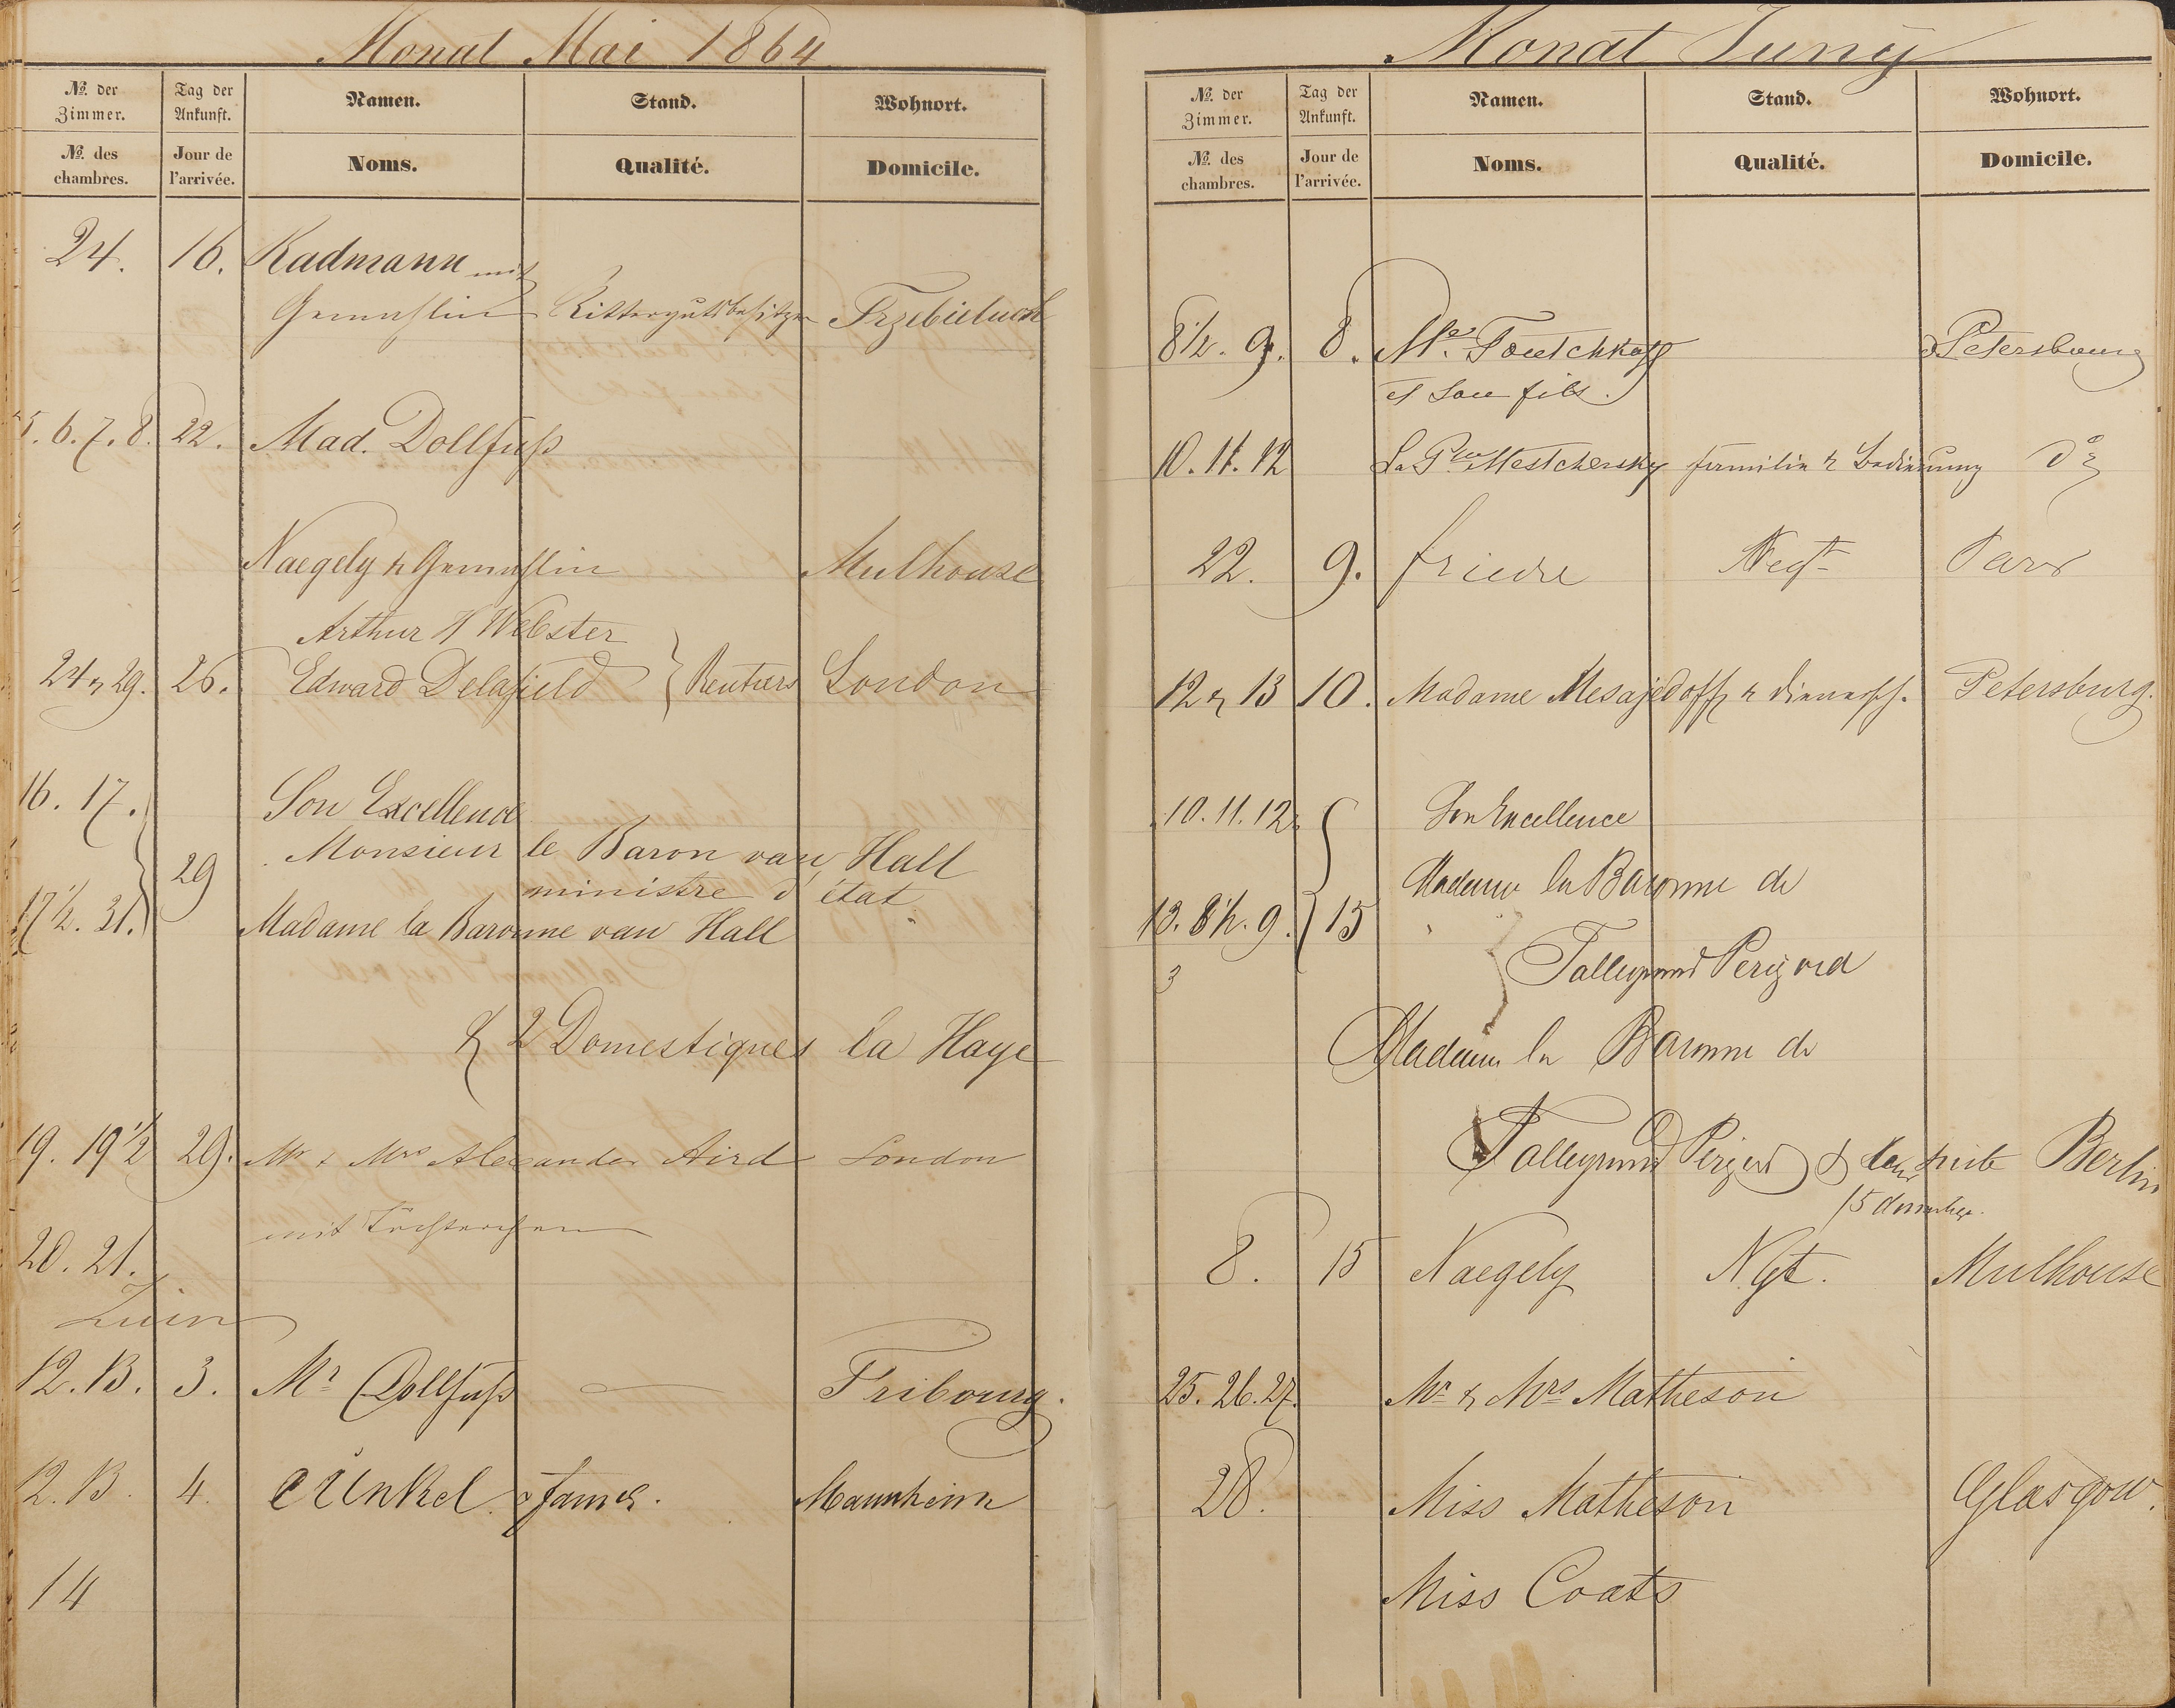 Monat Mai 1864
No. der Zimmer. Tag der Ankunft. Namen. Stand. Wohnort.
No. des chambres. Jour de l'arrivée. Noms. Qualité. Domicile.
24. 16. Kadmann mit
Gemahlin Rittergutsbesitzer
5. 6. 7. 8. 22. Mad. Dollfuß
Naegely & Gemahlin Mulhouse
Arthur H Webster
24 & 29. 26. Edward Delafield } Rentiers London
16. 17. Son Excellence
29 Monsieur le Baron van Hall
ministre d'état
17 1/2. 31. Madame la Baronne van Hall
& 2 Domestiques la Haye
19. 19 1/2 29. Mr & Mrs Alexander Aird London
mit Töchterchen
20. 21.
Juin
12. 13. 3. Mr Dollfuß — Fribourg.
12. 13. 4. Mannheim
14
Monat Juny
No. der Zimmer. Tag der Ankunft. Namen. Stand. Wohnort.
No. des chambres. Jour de l'arrivée. Noms. Qualité. Domicile.
8 1/2. 9. 8. Me. Toutchkoff Petersbourg
et son fils.
10. 11. 12 La Psse Mestchersky familie & Bedienung do
22. 9. Negt
12 & 13 10. Madame Mesajedoff & Dienersch. Petersburg.
10. 11. 12. Son Excellence
Madame la Baronne de
13. 8 1/2. 9. 15
3 Talleyrand Perigord
Madame la Baronne de
Talleyrand Perigord & leur suite Berlin
15
8. 15 Naegely Ngt. Mulhouse
25. 26. 27. Mr & Mrs Matheson
28. Miss Matheson Glasgow.
Miss Coats